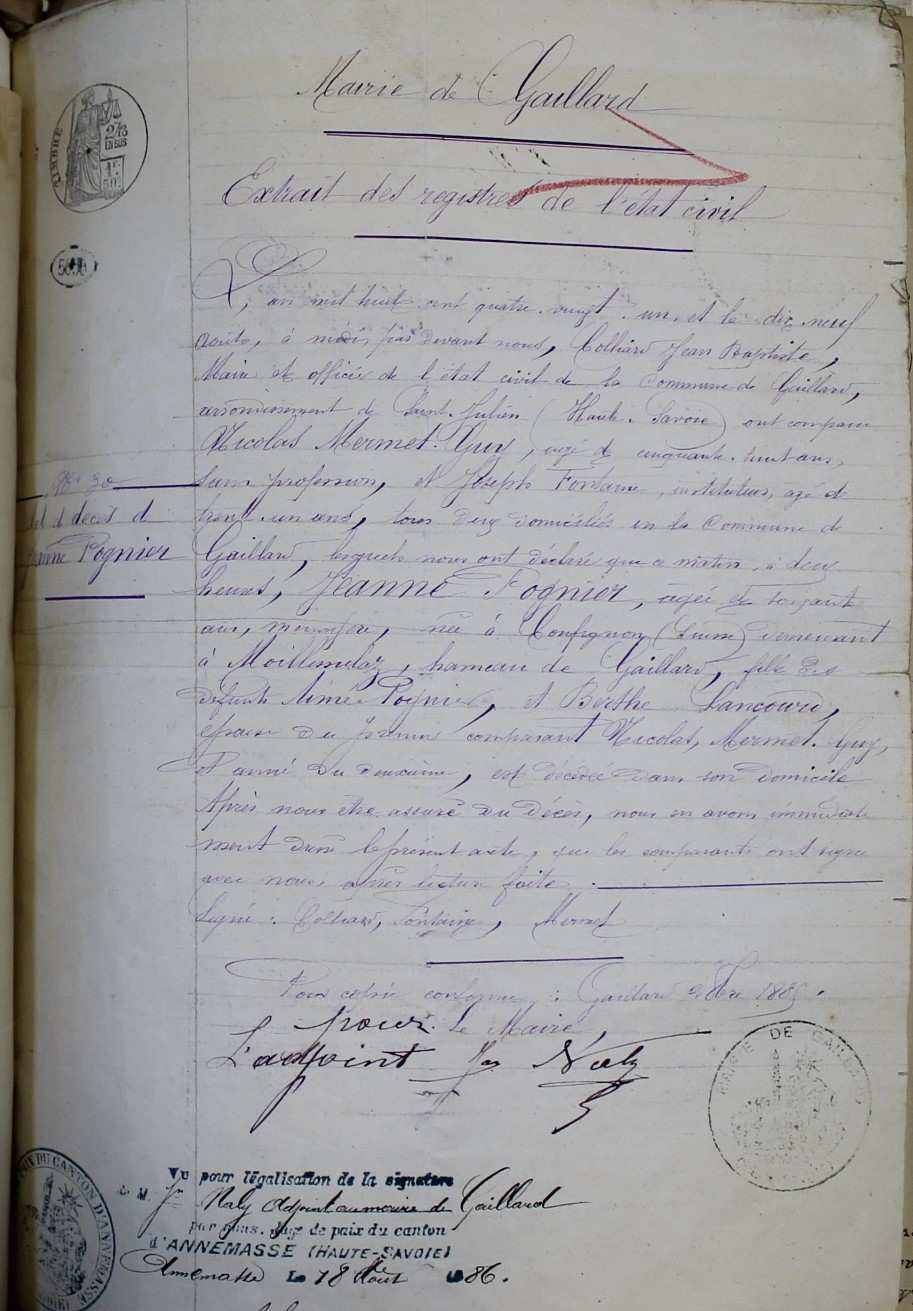 Mairie de Gaillard
TIMBRE
2/10
EN SUS
Extrait des registres de l'état civil
L'an mil huit cent quatre-vingt-un et le dix neuf
août, à midi, par devant nous, Colliard Jean Baptiste,
Maire et officier de l'état civil de la Commune de Gaillard,
arrondissement de Saint-Julien (Haute-Savoie) ont comparu
Nicolas Mermet-Guy, agé de cinquante-huit ans,
sans profession, et Joseph Fontaine, instituteur, agé de
trente-un ans, tous deux domiciliés en la Commune de
Gaillard, lesquels nous ont déclaré que ce matin, à deux
heures, Jeanne Pognier, agée de soixante
ans, ménagère, née à Confignon (Suisse) demeurant
à Moillesulaz, hameau de Gaillard, fille des
défunts Aimé Pognier, et Berthe Lancourd,
épouse du premier comparant Nicolas Mermet-Guy,
et amie du deuxième, est décédée dans son domicile
Après nous être assuré du décès, nous en avons immédiate
ment dressé le présent acte, que les comparants ont signé
avec nous après lecture faite.
Signé : Colliard, Fontaine, Mermet
N° 30
de décès d
Jeanne Pognier
Pour copie conforme : Gaillard
pour Le Maire,
L'adjoint Naly
MAIRIE DE GAILLARD
Vu pour légalisation de la signature
de M. Jn Naly adjoint au maire de Gaillard
par nous, Juge de paix du canton
d'ANNEMASSE (HAUTE-SAVOIE)
Annemasse Le 18 Août 1886.
DU CANTON D'ANNEMASSE